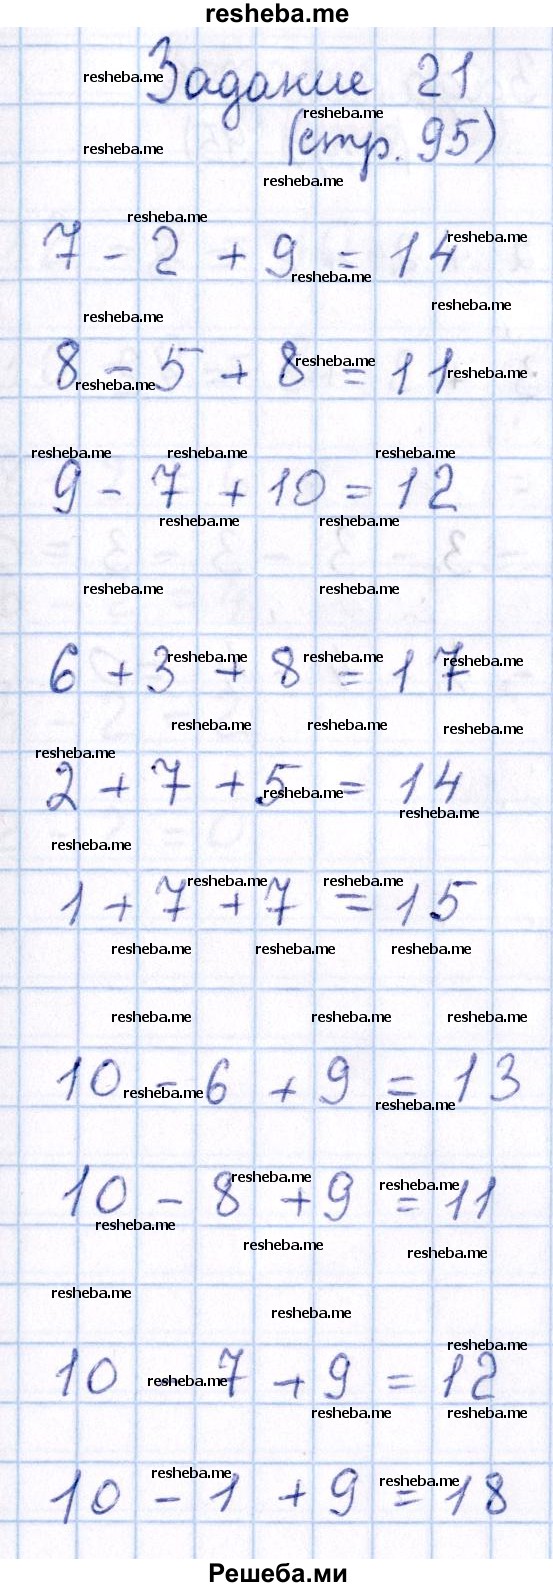 resheba.me
Задание 21
(стр. 95)
7 - 2 + 9 = 14
8 - 5 + 8 = 11
9 - 7 + 10 = 12
6 + 3 + 8 = 17
2 + 7 + 5 = 14
1 + 7 + 7 = 15
10 - 6 + 9 = 13
10 - 8 + 9 = 11
10 7 + 9 = 12
10 - 1 + 9 = 18
Решеба.ми